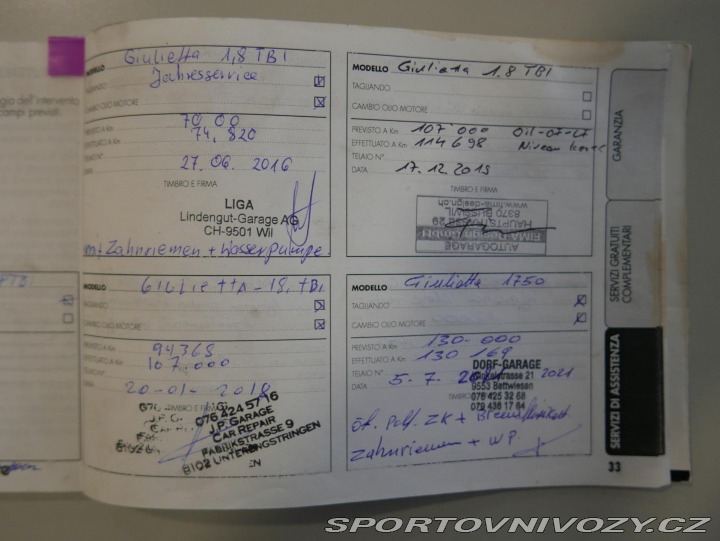 gio dell'intervento
campi previsti.
MODELLO Giulietta 1,8 TBI
Jahresservice
TAGLIANDO
CAMBIO OLIO MOTORE
PREVISTO A Km 70 00
EFFETTUATO A Km 74,820
TELAIO N°
DATA 27.06.2016
TIMBRO E FIRMA
LIGA
Lindengut-Garage AG
CH-9501 Wil
Zahnriemen + Wasserpumpe
MODELLO Giulietta 1.8 TBI
TAGLIANDO
CAMBIO OLIO MOTORE
PREVISTO A Km 107'000
EFFETTUATO A Km 114698 Niveau
TELAIO N°
DATA 17.12.2019
TIMBRO E FIRMA
AUTOGARAGE
HAUPTSTRASSE 29
8370 BUSSWIL
www.fima-design.ch
MODELLO GIULIETTA-18.TBI
TAGLIANDO
CAMBIO OLIO MOTORE
PREVISTO A Km 94365
EFFETTUATO A Km 107.000
TELAIO N°
DATA 20-01-2018
TIMBRO E FIRMA
076 424 57 16
J.P. GARAGE
CAR REPAIR
FABRIKSTRASSE 9
8102 UNTERENGSTRINGEN
MODELLO Giulietta 1750
TAGLIANDO
CAMBIO OLIO MOTORE
PREVISTO A Km 130-000
EFFETTUATO A Km 130 169
TELAIO N°
DATA 5.7. 2021
DORF-GARAGE
9553 Bettwiesen
076 425 32 68
079 436 17 64
ZK +
Zahnriemen + WP.
GARANZIA
SERVIZI GRATUITI
COMPLEMENTARI
SERVIZI DI ASSISTENZA
33
SPORTOVNIVOZY.CZ